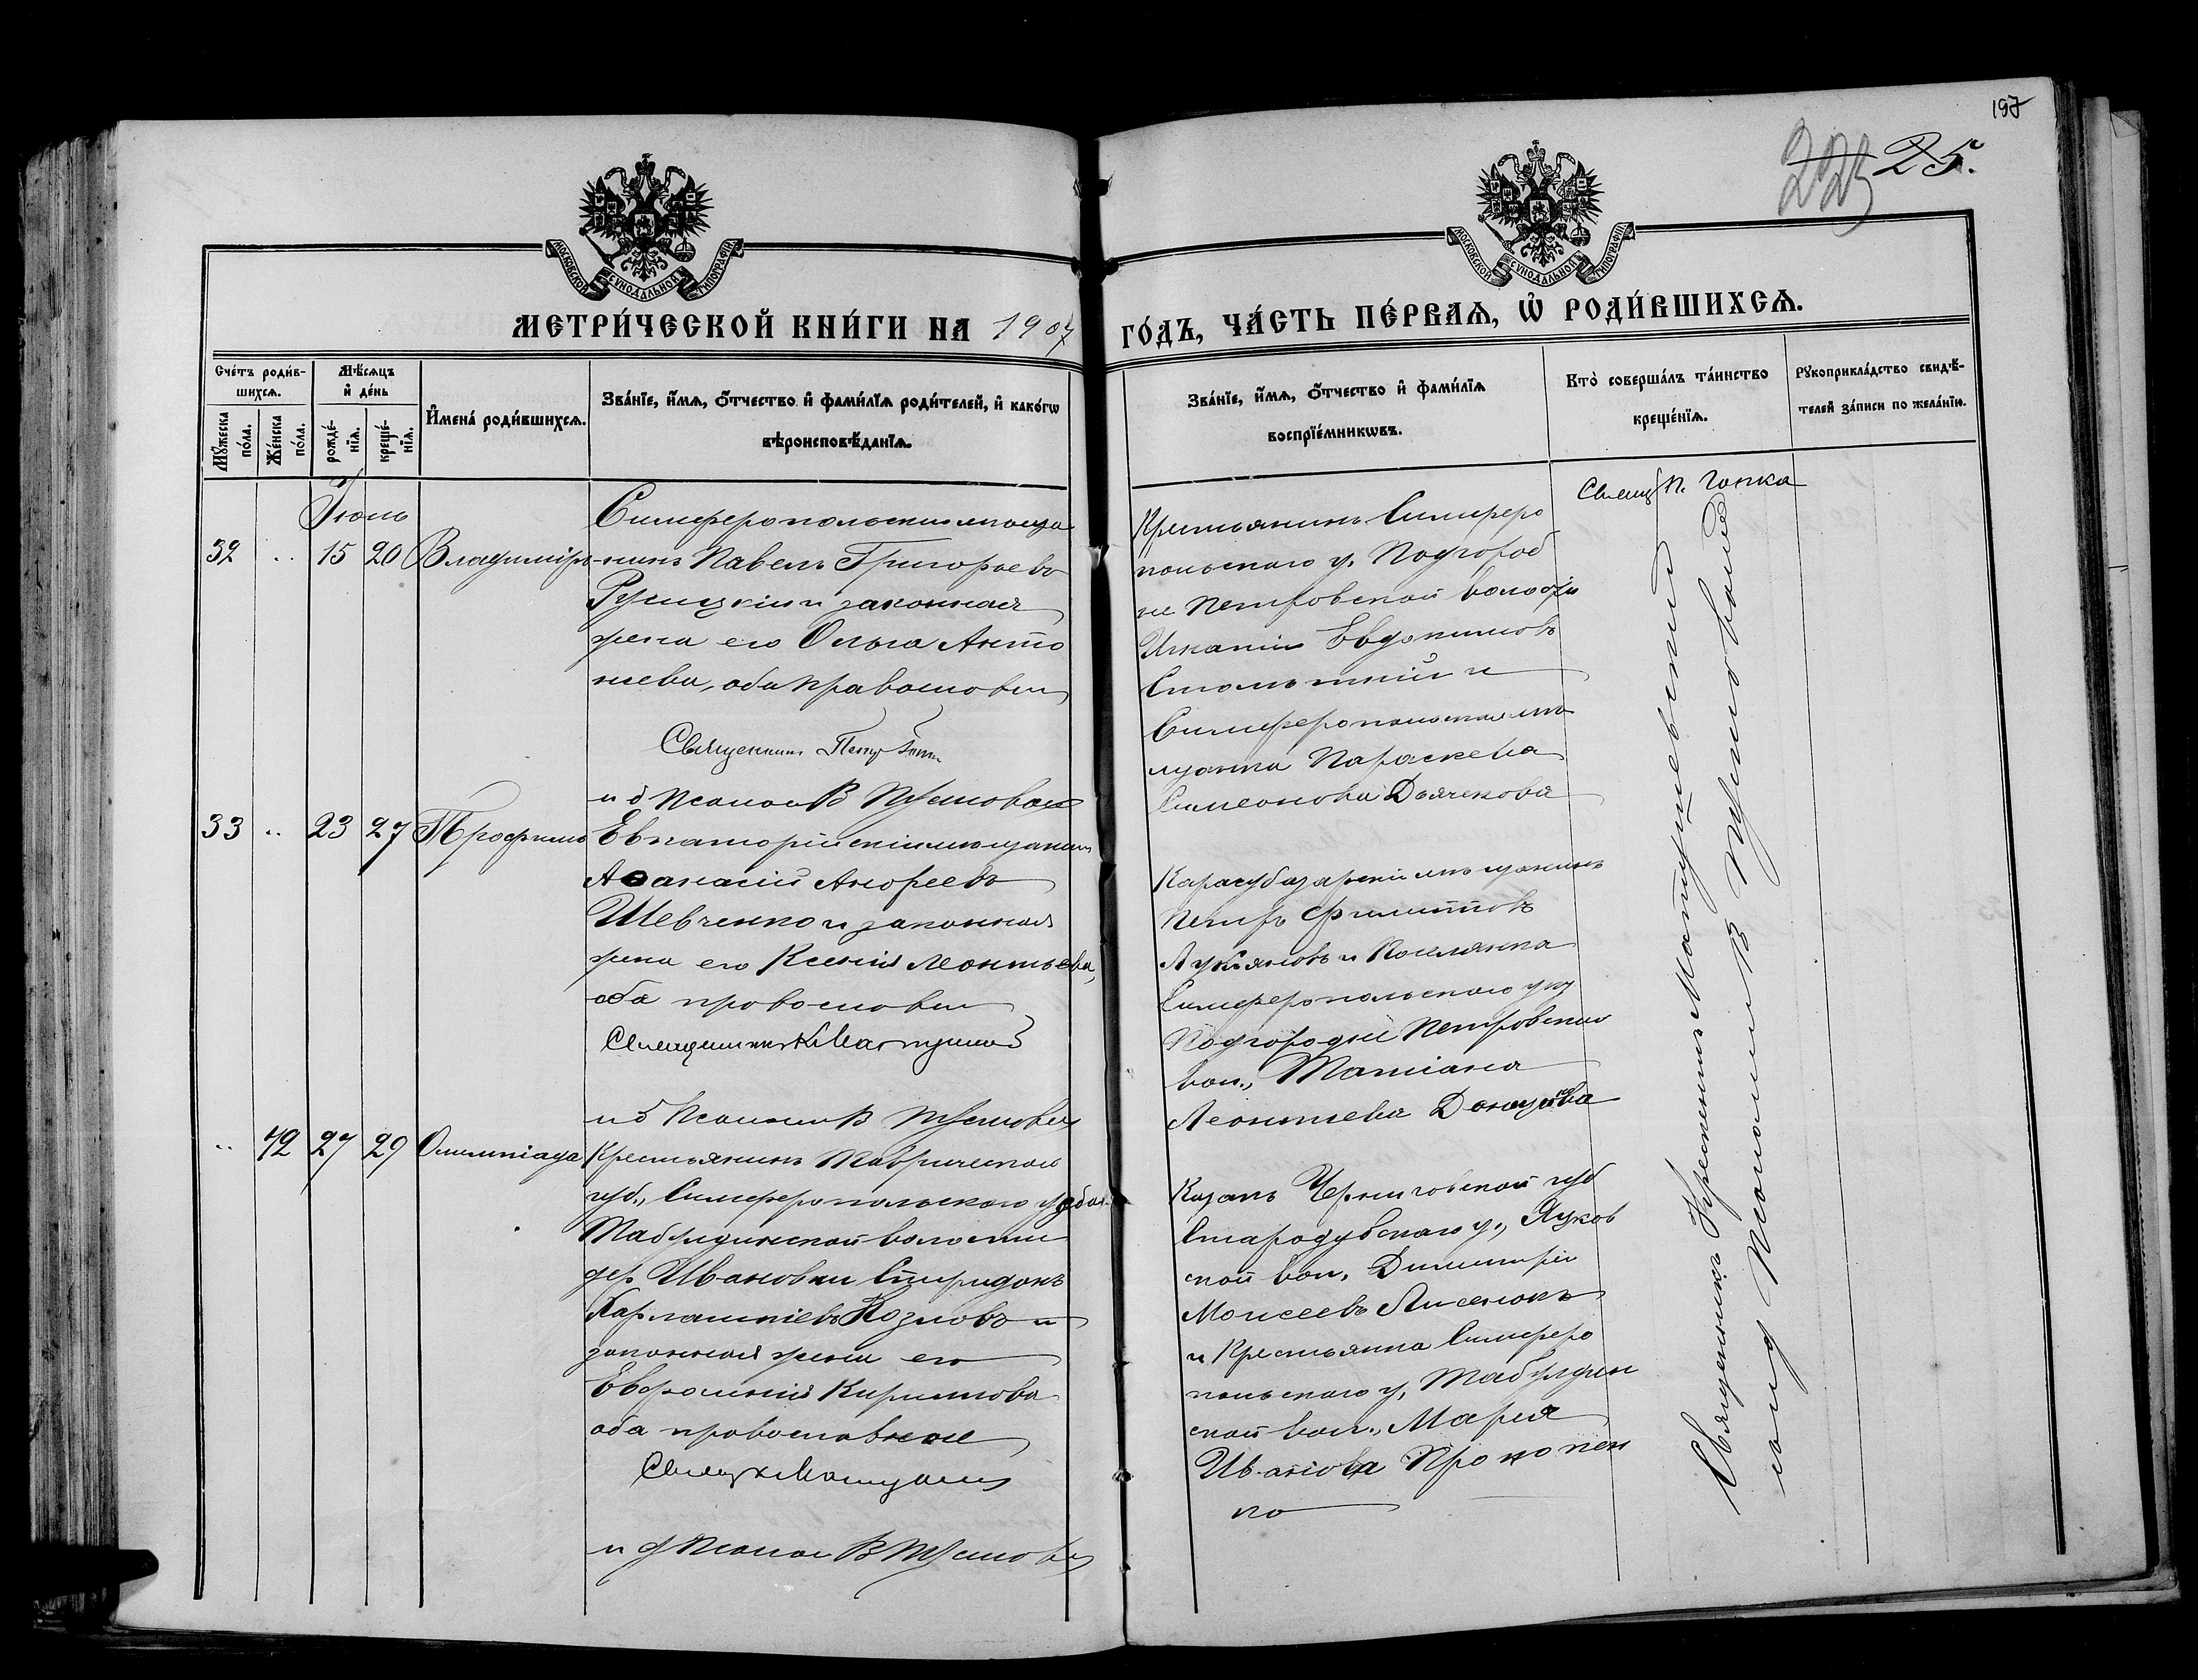 197
225 25.
МОСКОВСКОЙ СУНОДАЛЬНОЙ ТИПОГРАФІИ
МОСКОВСКОЙ СУНОДАЛЬНОЙ ТИПОГРАФІИ
МЕТРИ́ЧЕСКОЙ КНИ́ГИ НА 1907 ГО́ДЪ, ЧА́СТЬ ПЕ́РВАѦ, Ѡ҆ РОДИ́ВШИХСѦ.
Сче́тъ роди́в-
шихсѧ.
Мꙋ́жеска по́ла.
Же́нска по́ла.
Мѣ́сѧцъ
и҆ де́нь
рожде́-
нїѧ.
креще́-
нїѧ.
И҆мена̀ роди́вшихсѧ.
Зва́нїе, и҆́мѧ, ѻ҆́тчество и҆ фами́лїѧ роди́телей, и҆ како́гѡ
вѣроисповѣ́данїѧ.
Зва́нїе, и҆́мѧ, ѻ҆́тчество и҆ фами́лїѧ
воспрїе́мникѡвъ.
Кто̀ соверша́лъ та́инство
креще́нїѧ.
Рꙋкоприкла́дство свидѣ́-
телей за́писи по жела́нїю.
Іюнь
32 .. 15 20 Владиміръ
Симферопольскій мѣща
нинъ Павелъ Григорьевъ
и законная
жена его Ольга Анто
нова, оба православн
Священникъ Петр
и д Псалом В
Крестьянинъ Симферо
польскаго у. Подгород
не Петровской волости
Игнатій Евдокимовъ
и
Симферопольская мѣ
щанка Параскева
Симеонова Дьячкова
Свящ П. Гопка
33 .. 23 27 Трофимъ
Евпаторійскій мѣщанинъ
Аѳанасій Андреевъ
Шевченко и законная
жена его Ксенія Леонтьева,
оба православн
Священникъ К. Матушев
и д Псалом В
Карасубазарскій мѣщанинъ
Петръ Филипповъ
Лукьяновъ и Поселянка
Симферопольскаго уѣз
Подгородне Петровской
вол., Татіана
Леонтьева
.. 42 27 29 Олимпіада
Крестьянинъ Таврической
губ., Симферопольскаго уѣзда
Табулдинской волости
дер Ивановки Спиридонъ
Харлампіевъ Козловъ и
законная жена его
Евфросинія Кириллова
оба православные
Свящ К Матушев
и д Псалом В
Казакъ Черниговской губ
Стародубскаго у.,
ской вол. Димитрій
Моисеевъ Лисенокъ
и Крестьянка Симферо
польскаго у. Табулдин
ской вол., Марія
Иванова Прокопен
ко
Священникъ Константинъ Матушевскій
Псаломщ В